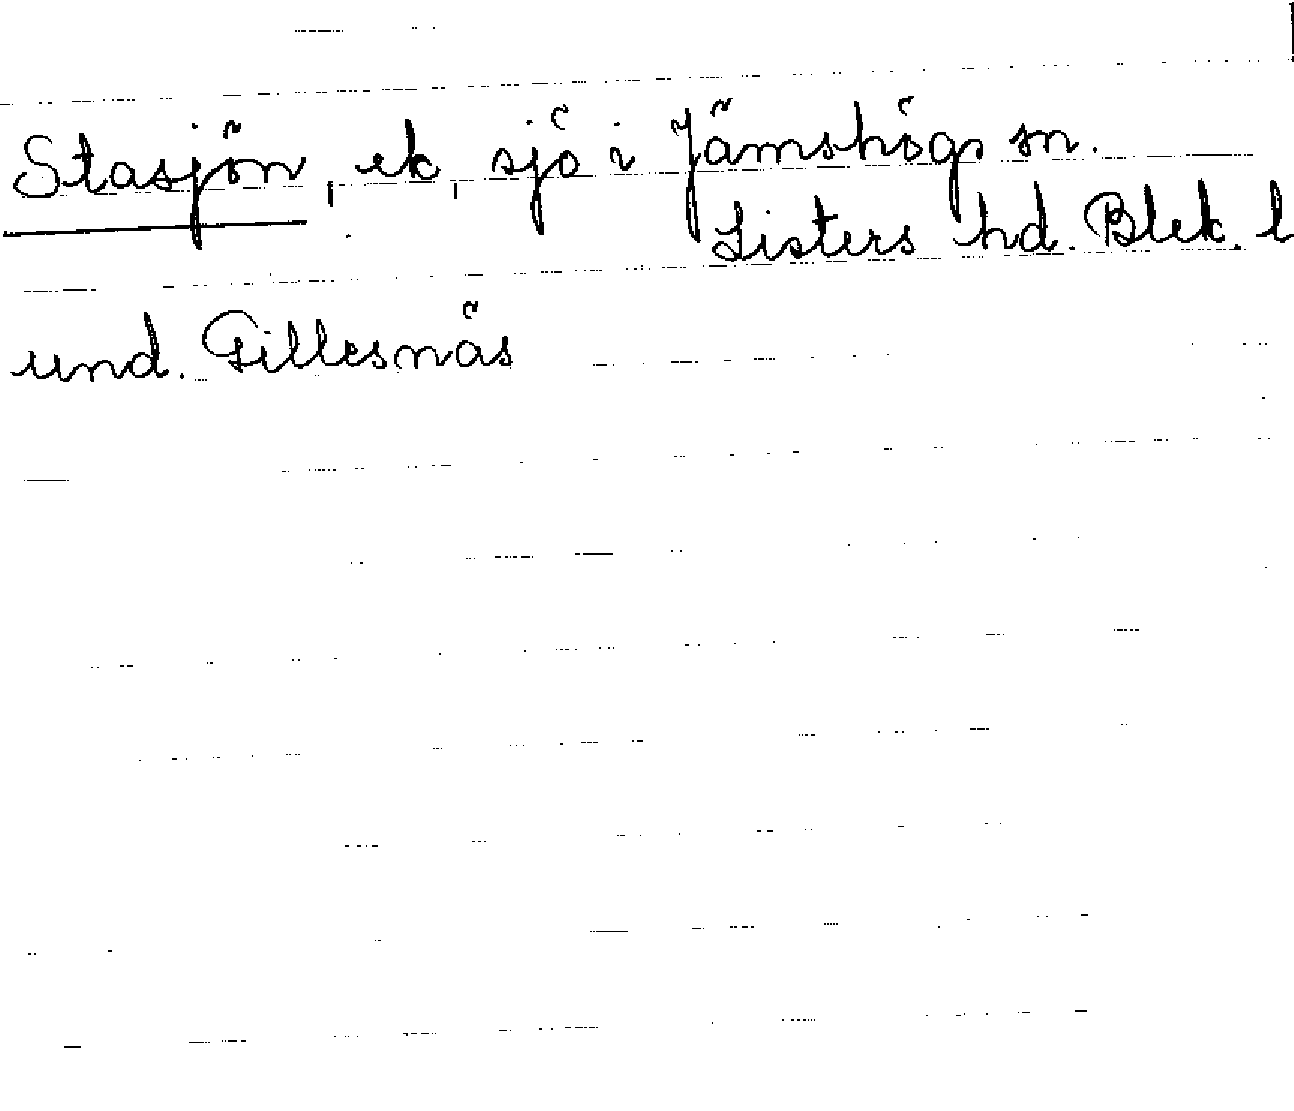 Stasjön, ek, sjö i Jämshögs sn.
Listers hd. Blek. l
und. Gillesnäs